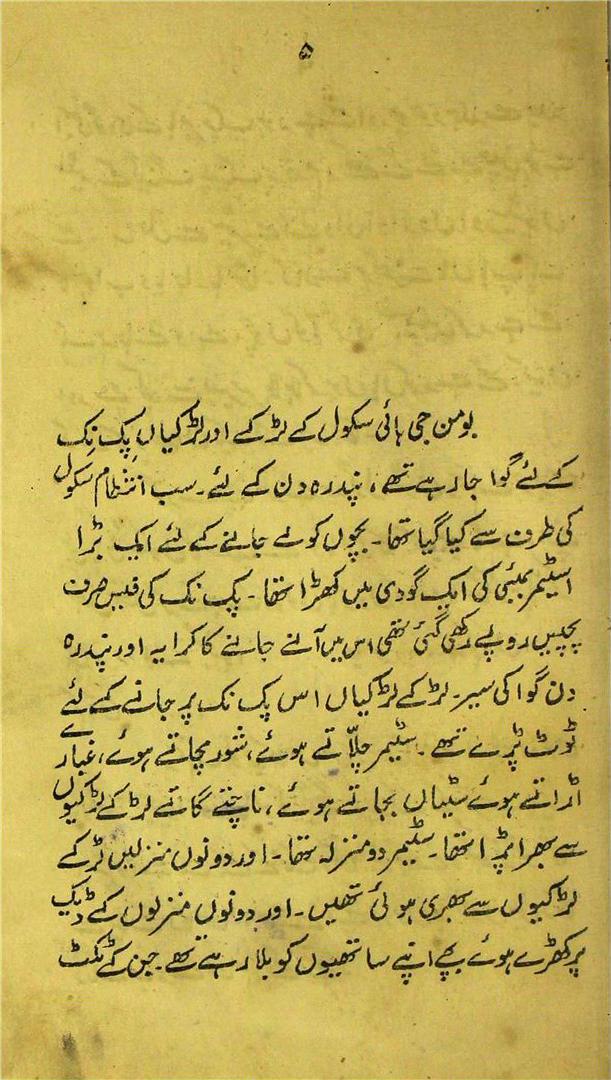 ۵
بومن جی ہائی سکول کے لڑکے اور لڑکیاں پِک نِک
کے لئے گوا جا رہے تھے، پندرہ دن کے لئے۔ سب انتظام سکول
کی طرف سے کیا گیا تھا۔ بچوں کو لے جانے کے لئے ایک بڑا
اسٹیمر بمبئی کی ایک گودی میں کھڑا تھا۔ پک نک کی فیس صرف
پچیس روپے رکھی گئی تھی اس میں آنے جانے کا کرایہ اور پندرہ
دن گوا کی سیر۔ لڑکے لڑکیاں اس پک نک پر جانے کے لئے
ٹوٹ پڑے تھے۔ سٹیمر چلّاتے ہوئے، شور مچاتے ہوئے، غبارے
اڑاتے ہوئے سٹیاں بجاتے ہوئے، ناچتے گاتے لڑکے لڑکیوں
سے بھرا پڑا تھا۔ سٹیمر دو منزلہ تھا۔ اور دونوں منزلیں لڑکے
لڑکیوں سے بھری ہوئی تھیں۔ اور دونوں منزلوں کے ڈیک
پر کھڑے ہوئے بچے اپنے ساتھیوں کو بلا رہے تھے۔ جن کے ٹکٹ